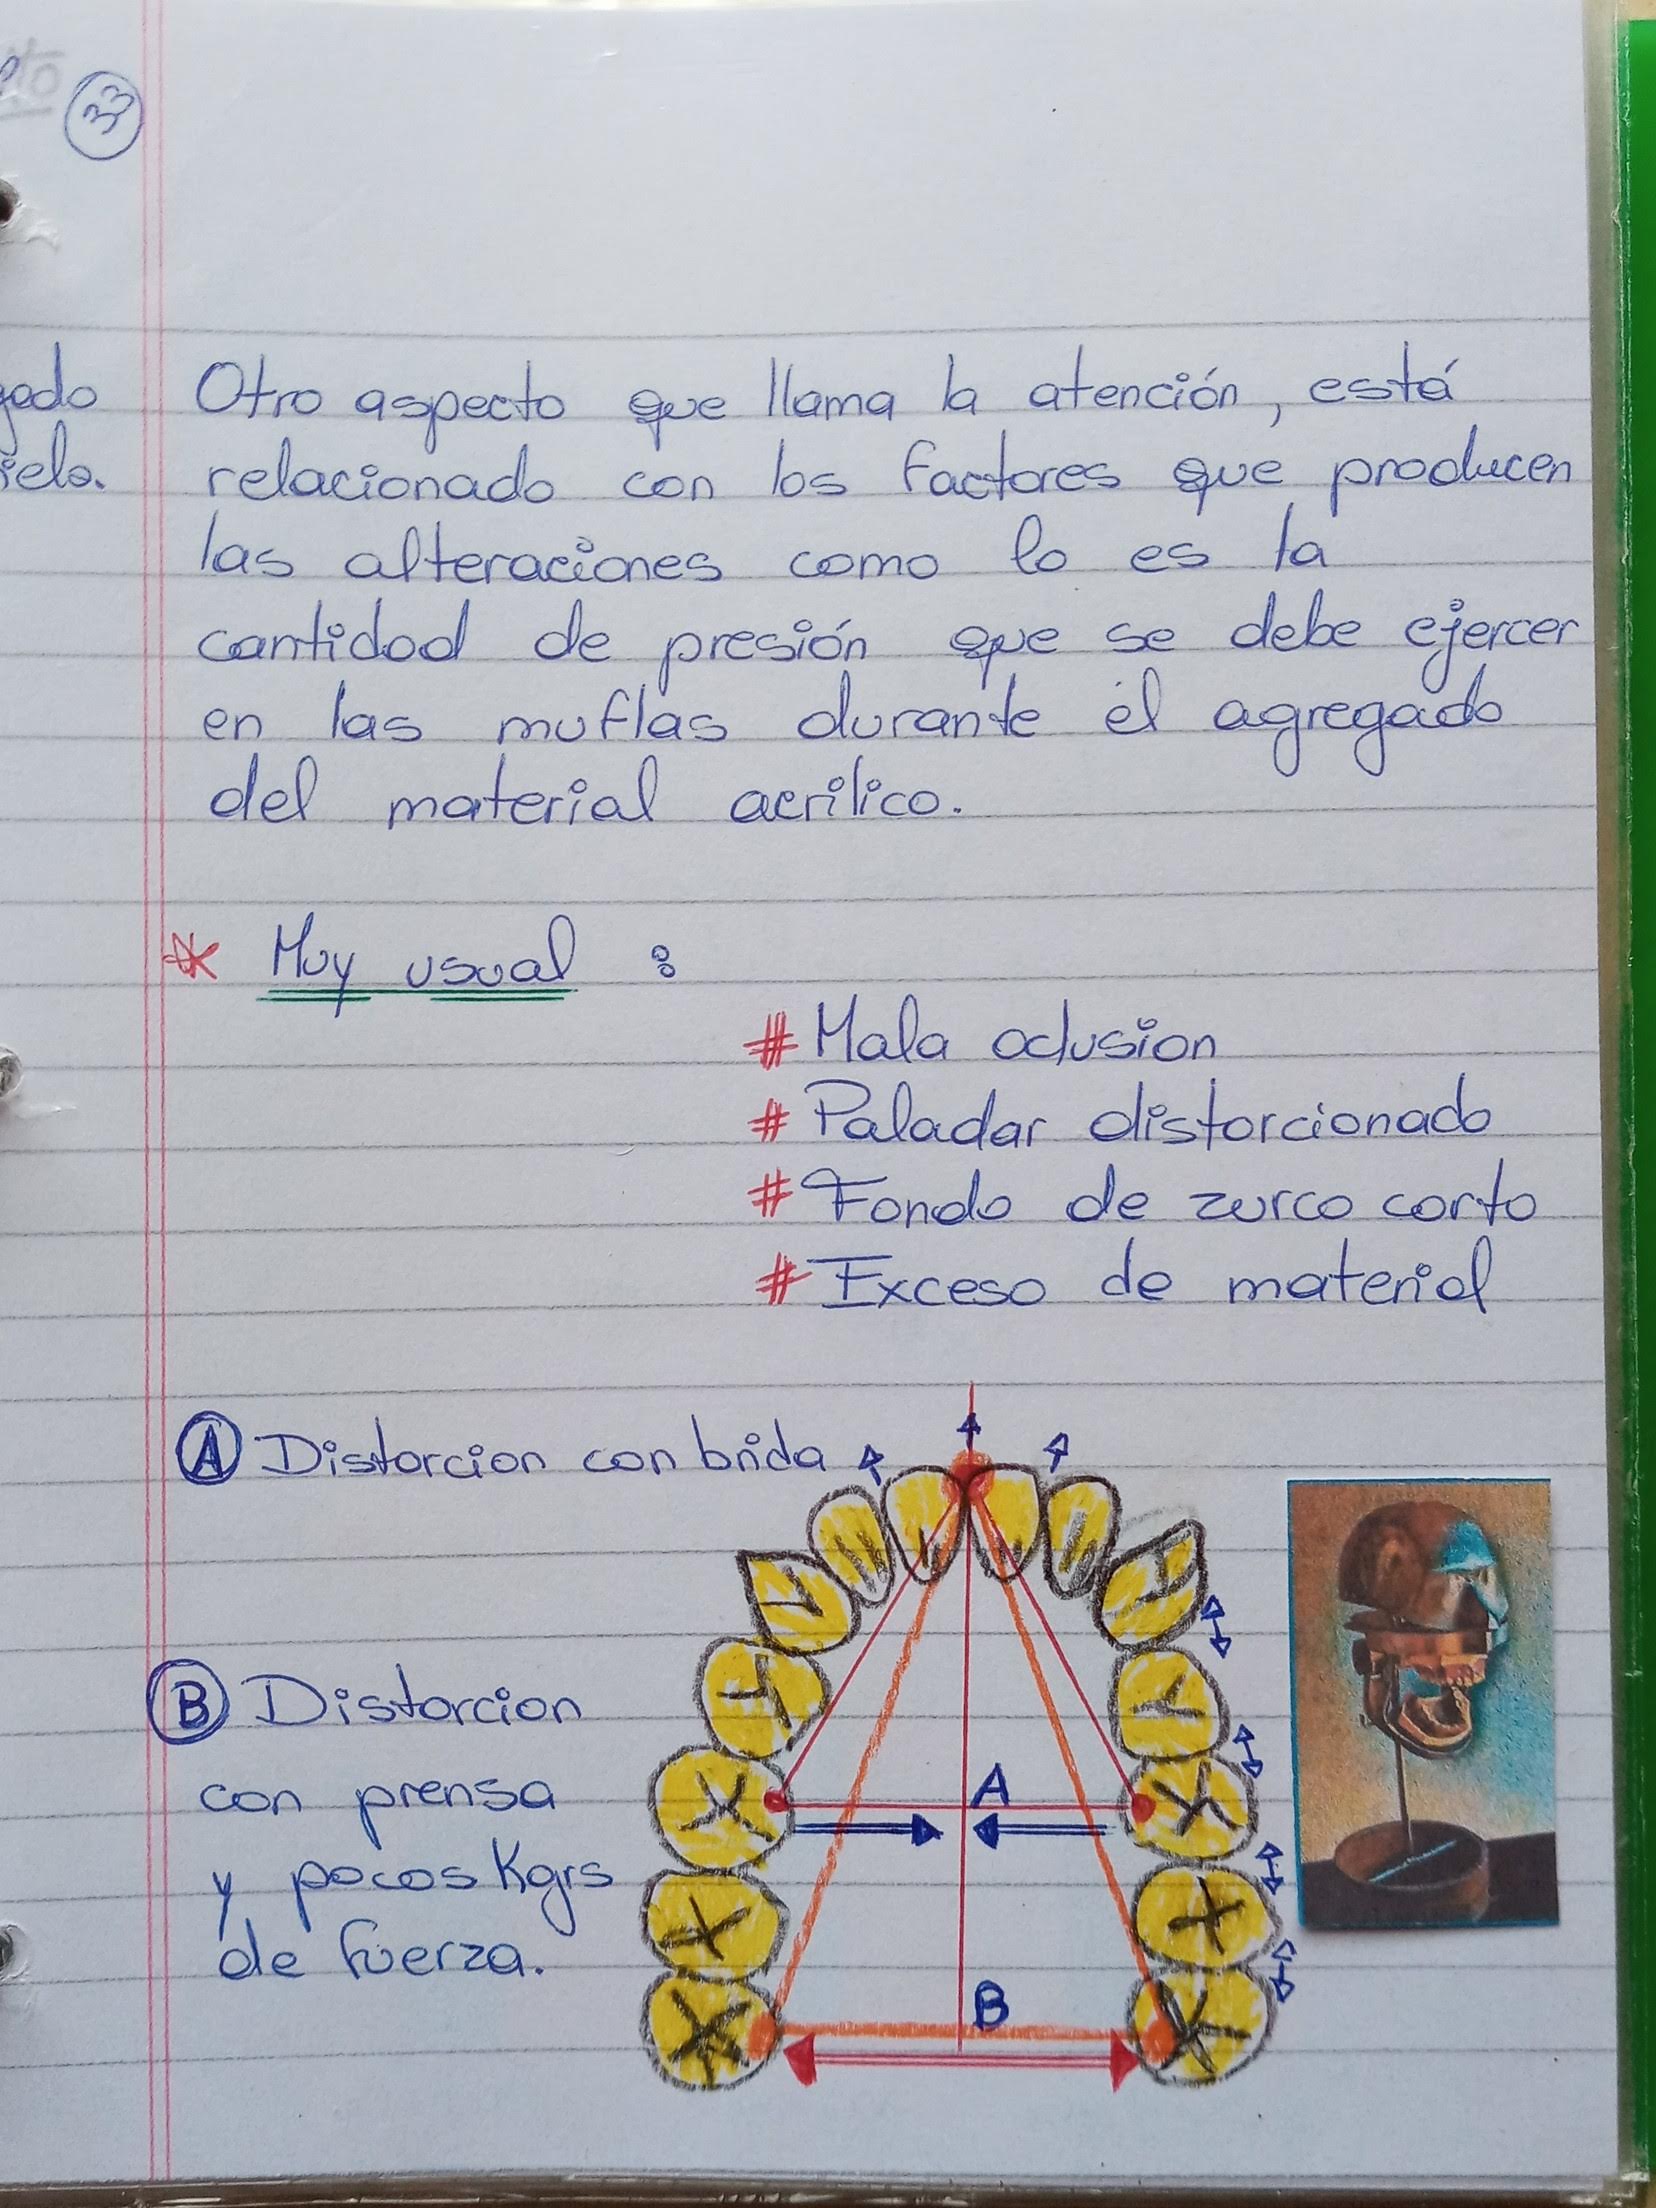 33
Otro aspecto que llama la atención, está
relacionado con los factores que producen
las alteraciones como lo es la
cantidad de presión que se debe ejercer
en las muflas durante él agregado
del material acrilico.
* Muy usual :
# Mala oclusion
# Paladar distorcionado
# Fondo de zurco corto
# Exceso de material
A Distorcion con brida
B Distorcion
con prensa
y pocos Kgrs
de fuerza.
A
B